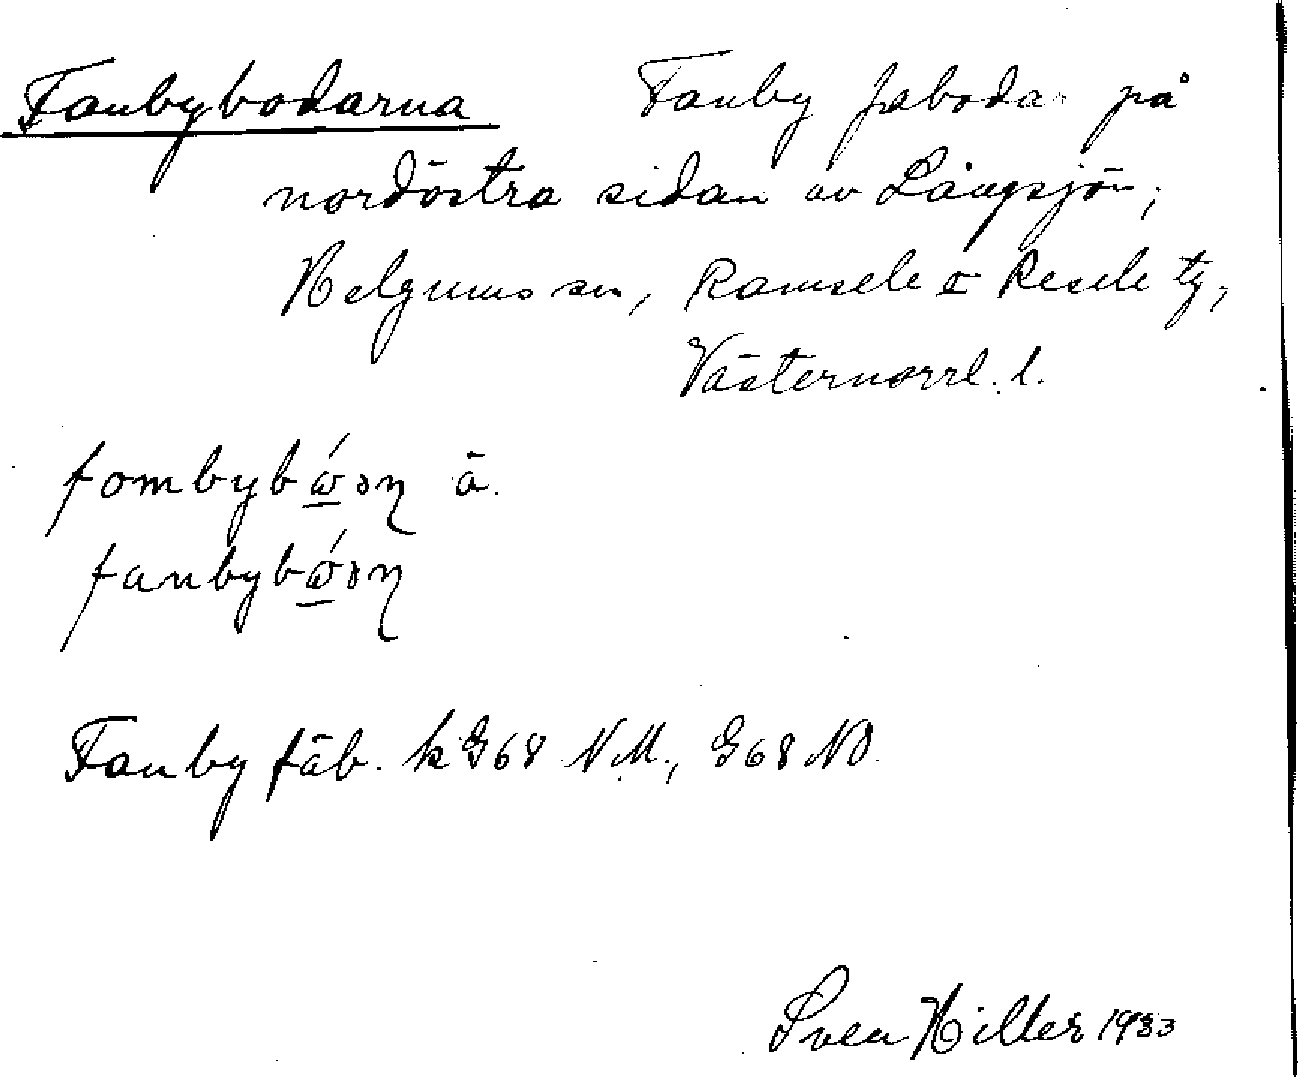 Fanbybodarna Fanby fäbodar på
nordöstra sidan av Långsjön;
Helgums sn, Ramsele o Resele tg,
Västernorrl. l.
fombybώ̲əη ā.
fanbybώ̲əη
Fanby fäb. k G68 N.M., G68 NO.
Sven Hiller 1933